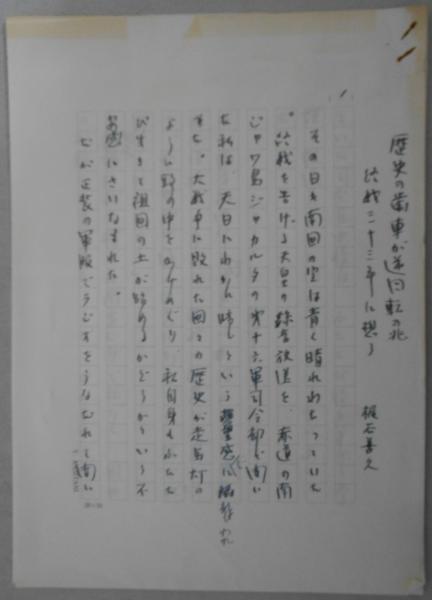 歴史の歯車が逆回転の兆
終戦二十三年に想う
梶谷善久
その日も南国の空は青く晴れわたっていた
。終戦を告げる天皇の録音放送を、赤道の南
ジャワ島ジャカルタの第十六軍司令部で聞い
た私は、天日にわかに暗しという
われ
た。大戦争に敗れた国々の歴史が走馬灯の
ように頭の中をかけめぐり、私自身もふたた
び生きて祖国の土が踏めるかどうかという不
安感にさいなまれた。
だが正装の軍服でラジオをうなだれて聞い